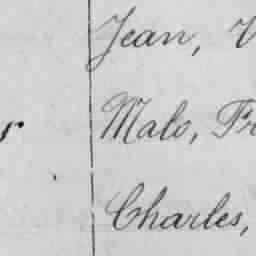 Jean,
Malo, Fr
Charles,